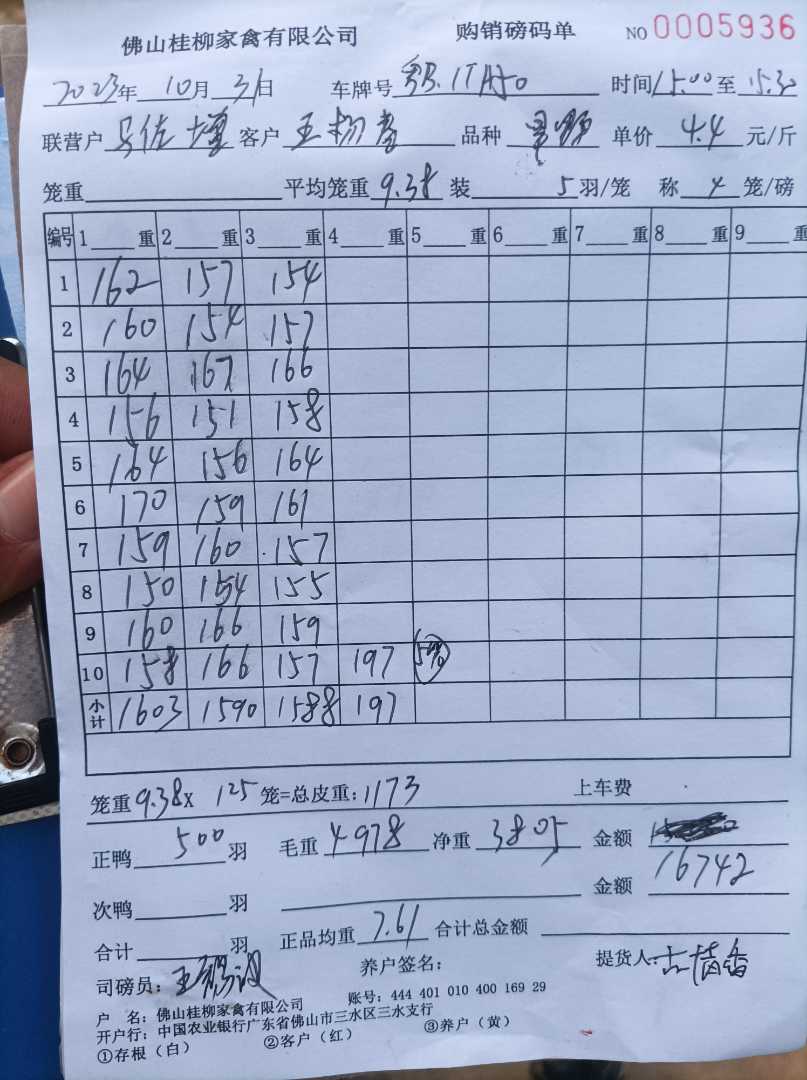 佛山桂柳家禽有限公司 购销磅码单 NO 0005936
2023年 10月 31日 车牌号 时间 15:00 至 15:30
联营户 客户 王 品种 单价 4.4 元/斤
笼重 平均笼重 9.38 装 5 羽/笼 称 4 笼/磅
编号 1 重 2 重 3 重 4 重 5 重 6 重 7 重 8 重 9 重
1 162 157 154
2 160 154 157
3 164 167 166
4 156 151 158
5 164 156 164
6 170 159 161
7 159 160 157
8 150 154 155
9 160 166 159
10 158 166 157 197
小计 1603 1590 1588 197
笼重 9.38 x 125 笼=总皮重: 1173 上车费
正鸭 500 羽 毛重 4978 净重 3805 金额
次鸭 羽 金额 16742
合计 羽 正品均重 7.61 合计总金额
司磅员: 王 养户签名: 提货人:
户 名: 佛山桂柳家禽有限公司 账号: 444 401 010 400 169 29
开户行: 中国农业银行广东省佛山市三水区三水支行
①存根（白） ②客户（红） ③养户（黄）